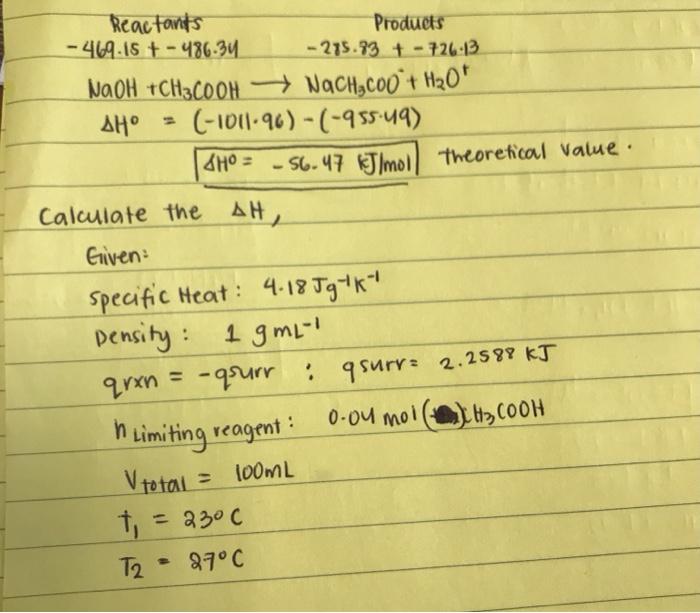 Reactants Products
-469.15 + -486.34 -285.83 + -726.13
NaOH + CH₃COOH → NaCH₃COO⁻ + H₂O⁺
ΔH° = (-1011.96) - (-955.49)
ΔH° = -56.47 KJ/mol theoretical value.
Calculate the ΔH,
Given:
Specific Heat: 4.18 Jg⁻¹K⁻¹
Density: 1 gmL⁻¹
qrxn = -qsurr : qsurr = 2.2588 KJ
n Limiting reagent: 0.04 mol ( ) CH₃COOH
Vtotal = 100mL
t₁ = 23°C
T₂ = 27°C